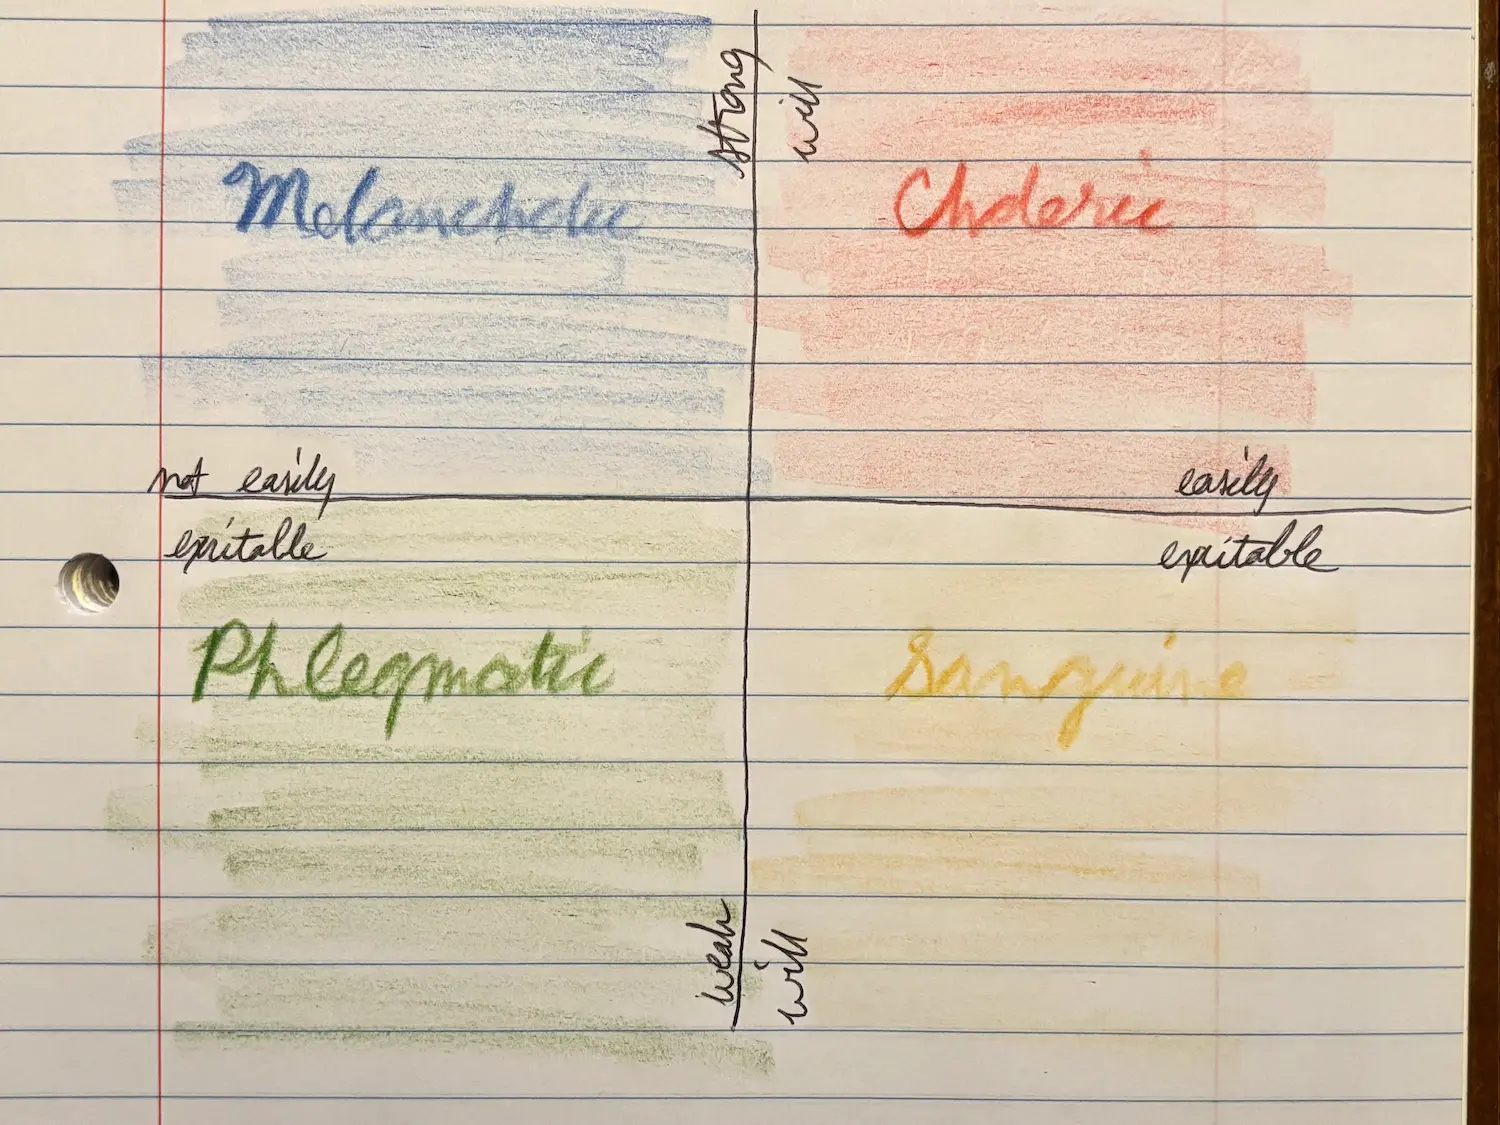 strong will
Melancholic
Choleric
not easily
exitable
easily
exitable
Phlegmatic
Sanguine
weak will